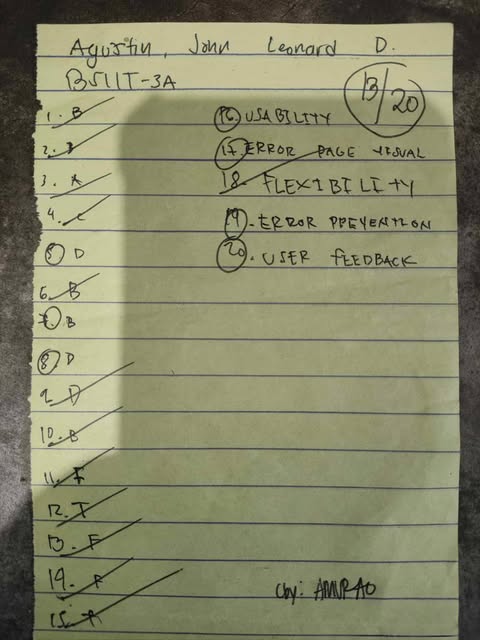 Agustin, John Leonard D.
BSIIT-3A
13/20
1. B
2. B
3. A
4. C
5 D
6. B
7. B
8 D
9. D
10. B
11. F
12. T
13. F
14. F
15. A
16 USABILITY
17. ERROR PAGE VISUAL
18. FLEXIBILITY
19. ERROR PREVENTION
20. USER FEEDBACK
cby: AMURAO